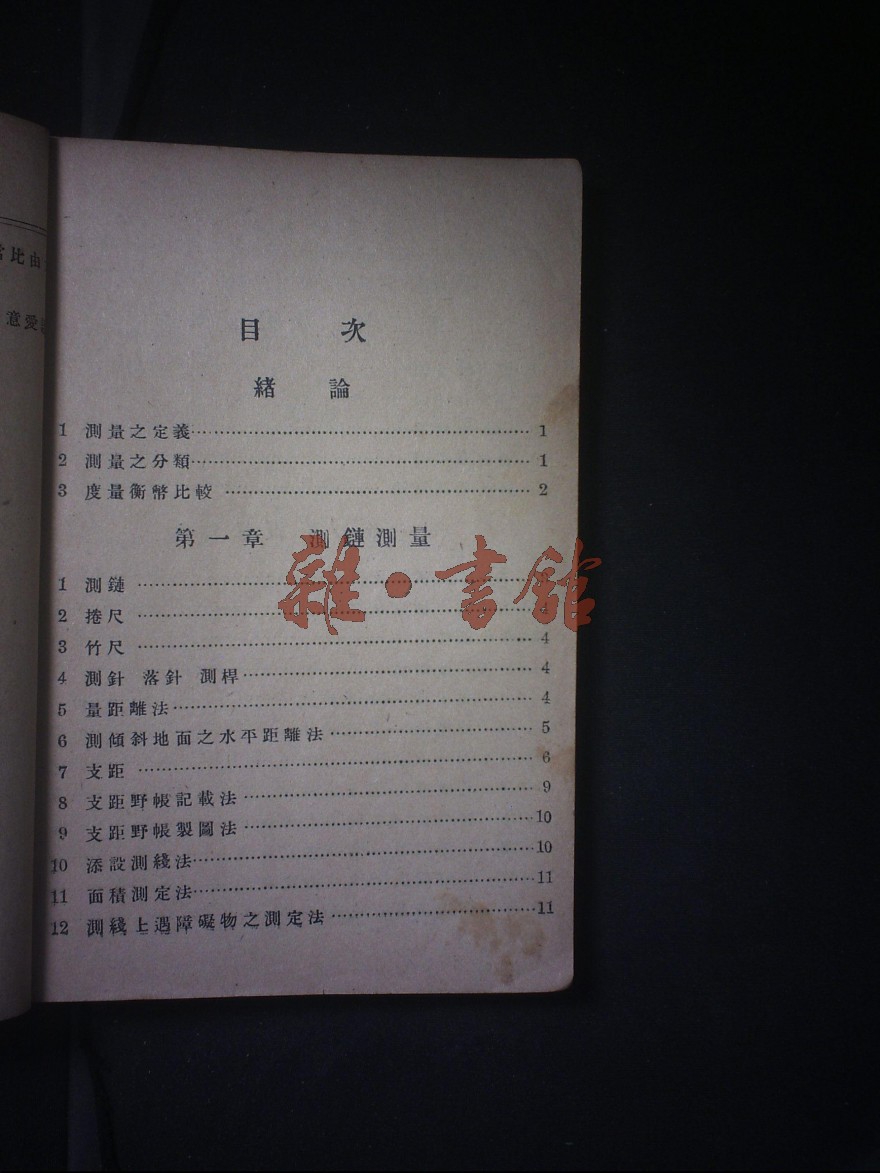 比由
意愛
目 次
緒 論
1 測量之定義………………………………1
2 測量之分類………………………………1
3 度量衡幣比較………………………………2
第一章 測鏈測量
雜·書館
1 測鏈………………………………
2 捲尺………………………………4
3 竹尺………………………………4
4 測針 落針 測桿………………………………4
5 量距離法………………………………4
6 測傾斜地面之水平距離法………………………………5
7 支距………………………………6
8 支距野帳記載法………………………………9
9 支距野帳製圖法………………………………10
10 添設測綫法………………………………10
11 面積測定法………………………………11
12 測綫上遇障礙物之測定法………………………………11